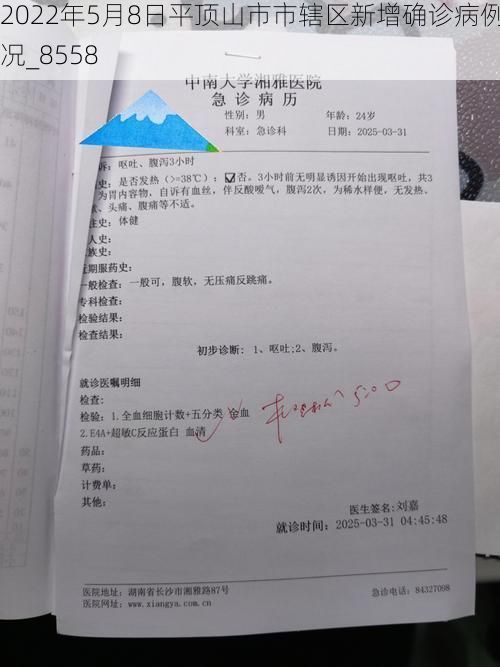 2022年5月8日平顶山市市辖区新增确诊病例
况_8558
中南大学湘雅医院
急诊病历
性别：男 年龄：24岁
科室：急诊科 日期：2025-03-31
诉：呕吐、腹泻3小时
史：是否发热（>=38℃）：☑否。3小时前无明显诱因开始出现呕吐，共3
为胃内容物，自诉有血丝，伴反酸嗳气，腹泻2次，为稀水样便，无发热、
、头痛、腹痛等不适。
往史：体健
人史：
族史：
近期服药史：
一般检查：一般可，腹软，无压痛反跳痛。
专科检查：
检验结果：
检查结果：
初步诊断： 1、呕吐;2、腹泻。
就诊医嘱明细
检查：
检验：1.全血细胞计数+五分类 全血
2.E4A+超敏C反应蛋白 血清
药品：
草药：
计费单：
其他：
医生签名:刘嘉
就诊时间：2025-03-31 04:45:48
医院地址：湖南省长沙市湘雅路87号 急诊电话：84327098
医院网址：www.xiangya.com.cn